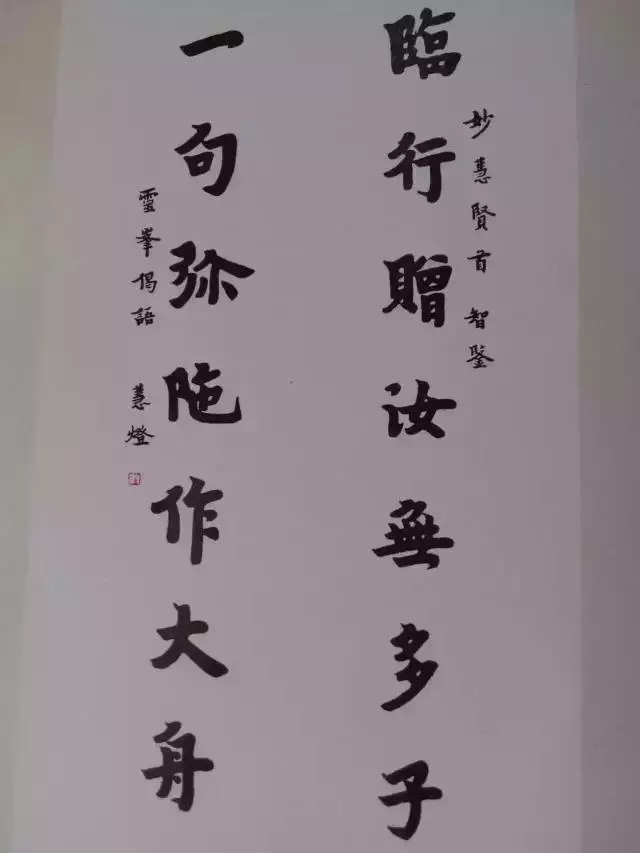 妙慧賢首 智鑒
臨行贈汝無多子
一句弥陁作大舟
雪峯偈語 慧燈